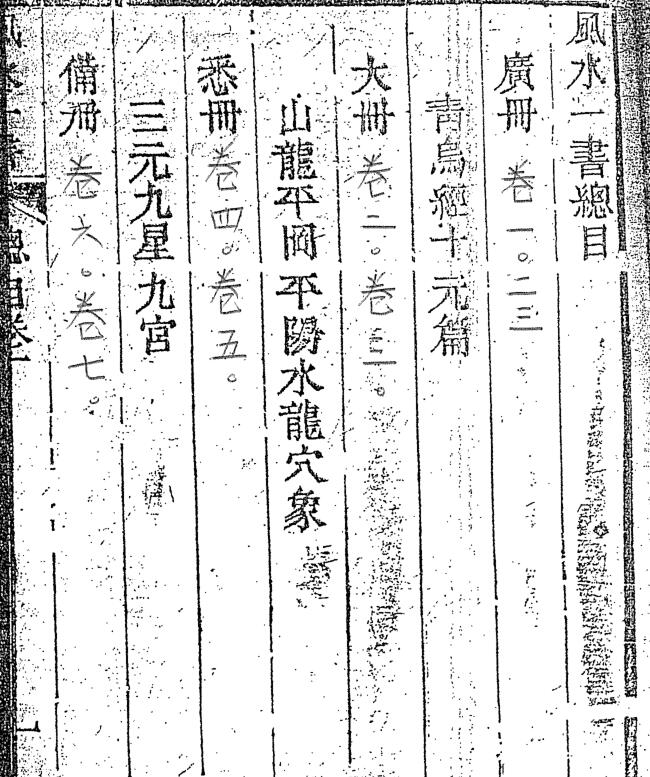 風水一書總目
廣冊 卷一。二三
青烏經十元篇
大冊 卷二。卷三。
山龍平岡平陽水龍穴象
悉冊 卷四。卷五。
三元九星九宮
備冊 卷六。卷七。
風水一書 總目卷
一